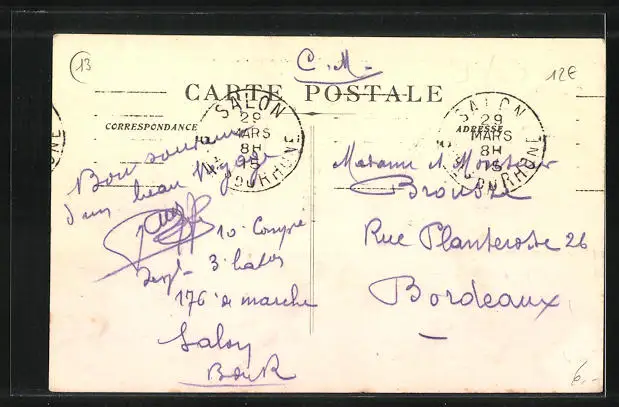 13
C. M.
12€
CARTE POSTALE
CORRESPONDANCE
ADRESSE
SALON
29
MARS
8H
15
BCHES DU RHONE
SALON
29
MARS
8H
15
RHONE
Bon souvenir
d'un beau voyage
10e Compie
176 de marche
Salon
B du R
Madame et Monsieur
Rue Planterose 26
Bordeaux
6.-